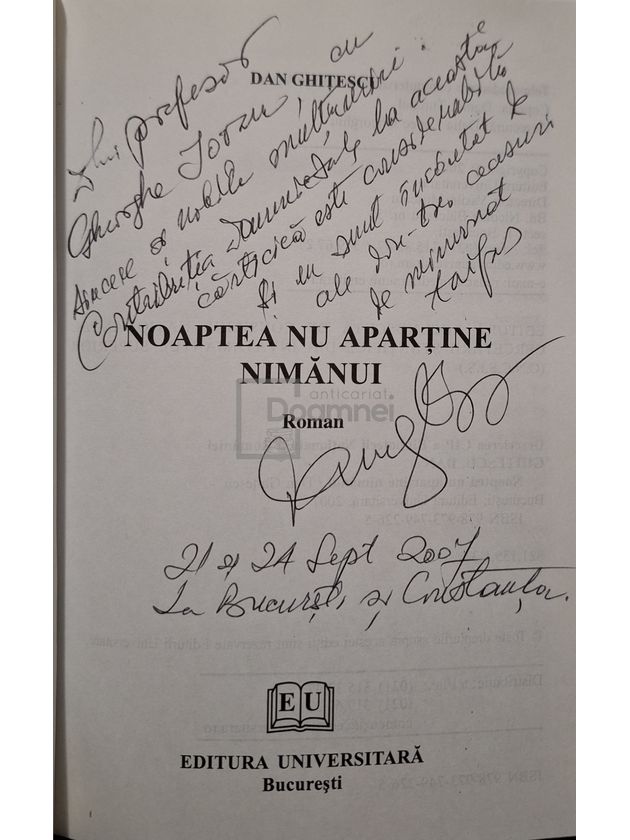 DAN GHIȚESCU
Dlui profesor
Gheorghe cu
sincere și nobile mulțumiri.
Contribuția Dumneitale la această
cărticică este considerabilă
și eu sunt încântat de
ale ceasuri
de minunat
taifas
NOAPTEA NU APARȚINE
NIMĂNUI
anticariat
Doamnei
Roman
21 și 24 Sept 2007
La București și Constanța.
EU
EDITURA UNIVERSITARĂ
București